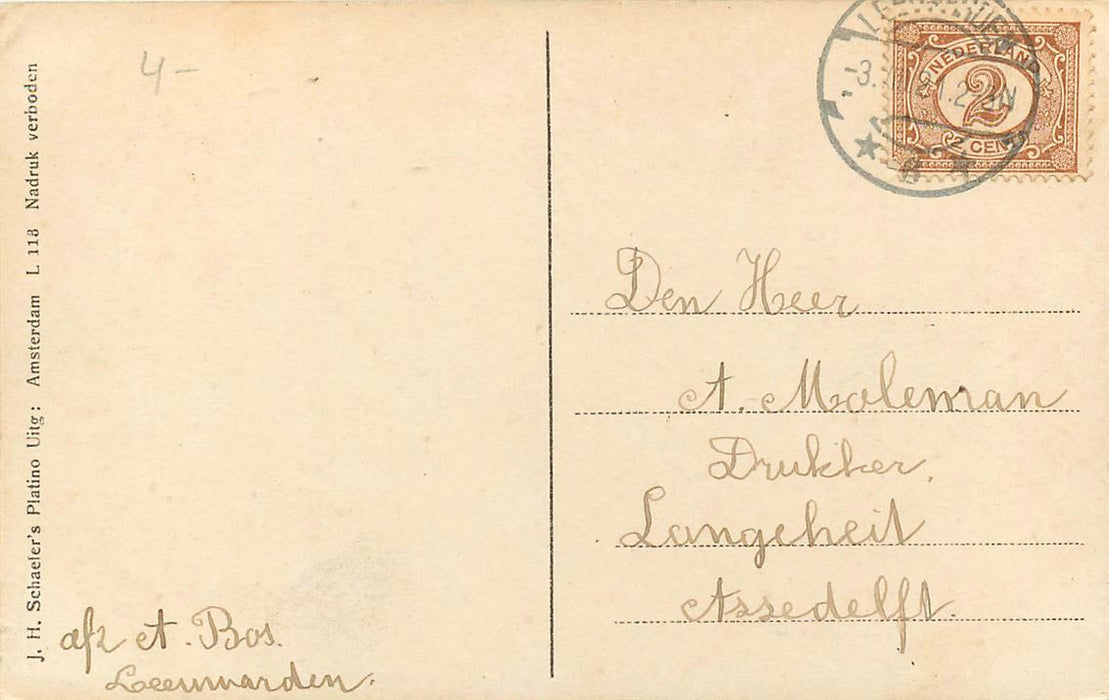 J. H. Schaefer's Platino Uitg: Amsterdam L 113 Nadruk verboden
4-
NEDERLAND
2
2 CENT
Den Heer
A. Moleman
Drukker,
Langeheit
Assedelft.
afz A. Bos.
Leeuwarden.